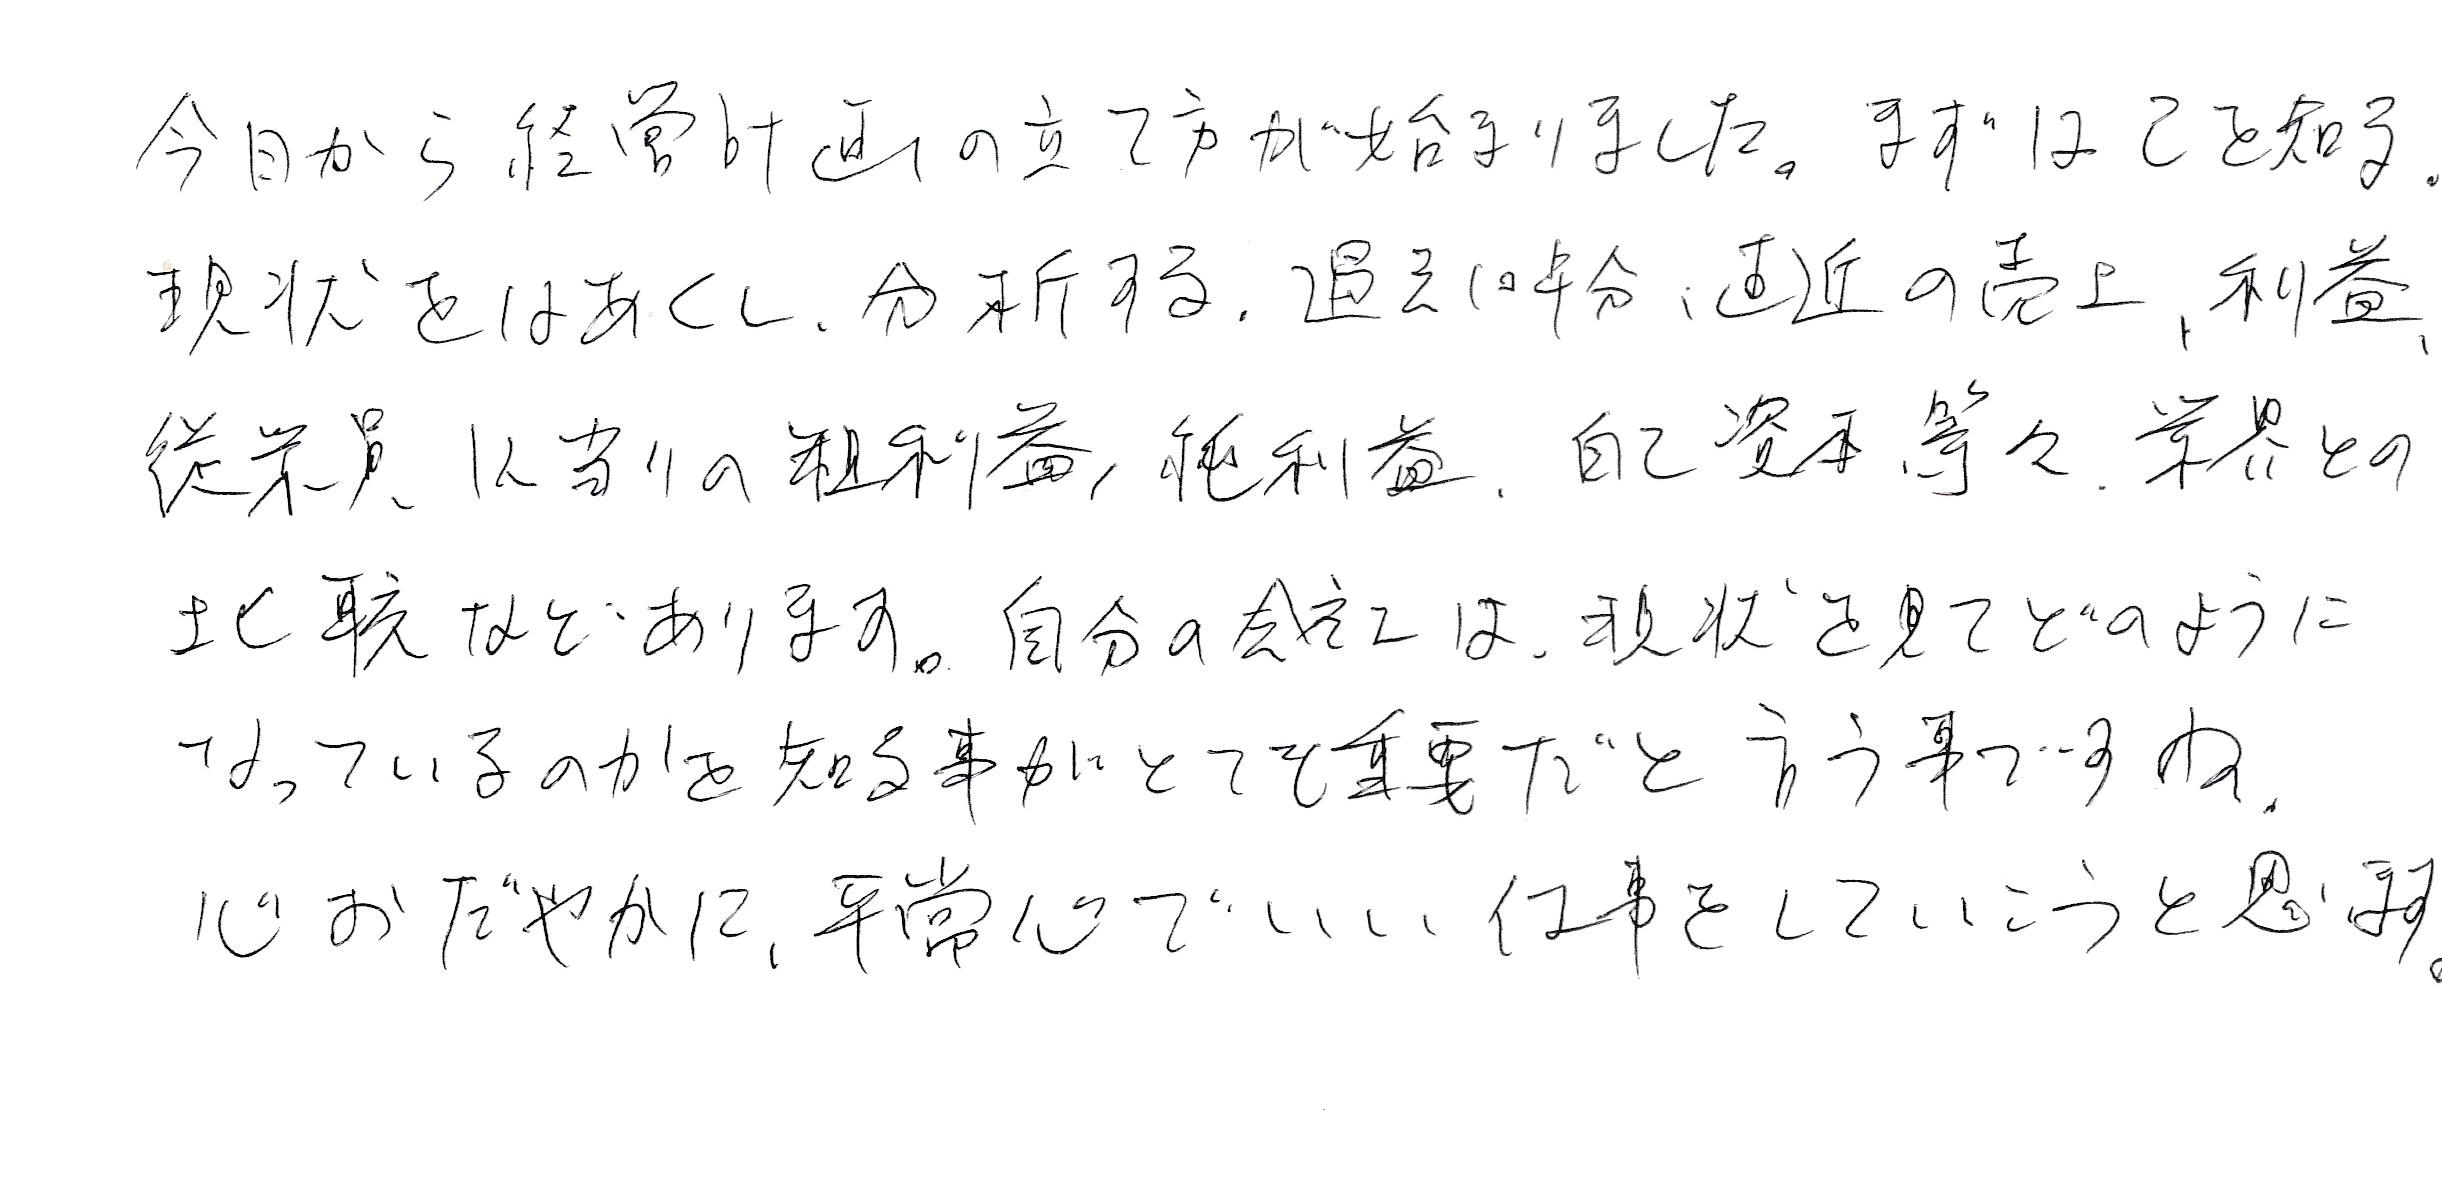 今日から経営計画の立て方が始まりました。まずは己を知る。
現状をはあくし、分析する。過去10年分、直近の売上、利益、
従業員、1人当りの粗利益、純利益、自己資本等々、業界との
比較などあります。自分の会社は、現状を見てどのように
なっているのかを知る事がとても重要だと言う事ですね。
心おだやかに、平常心でいい仕事をしていこうと思います。